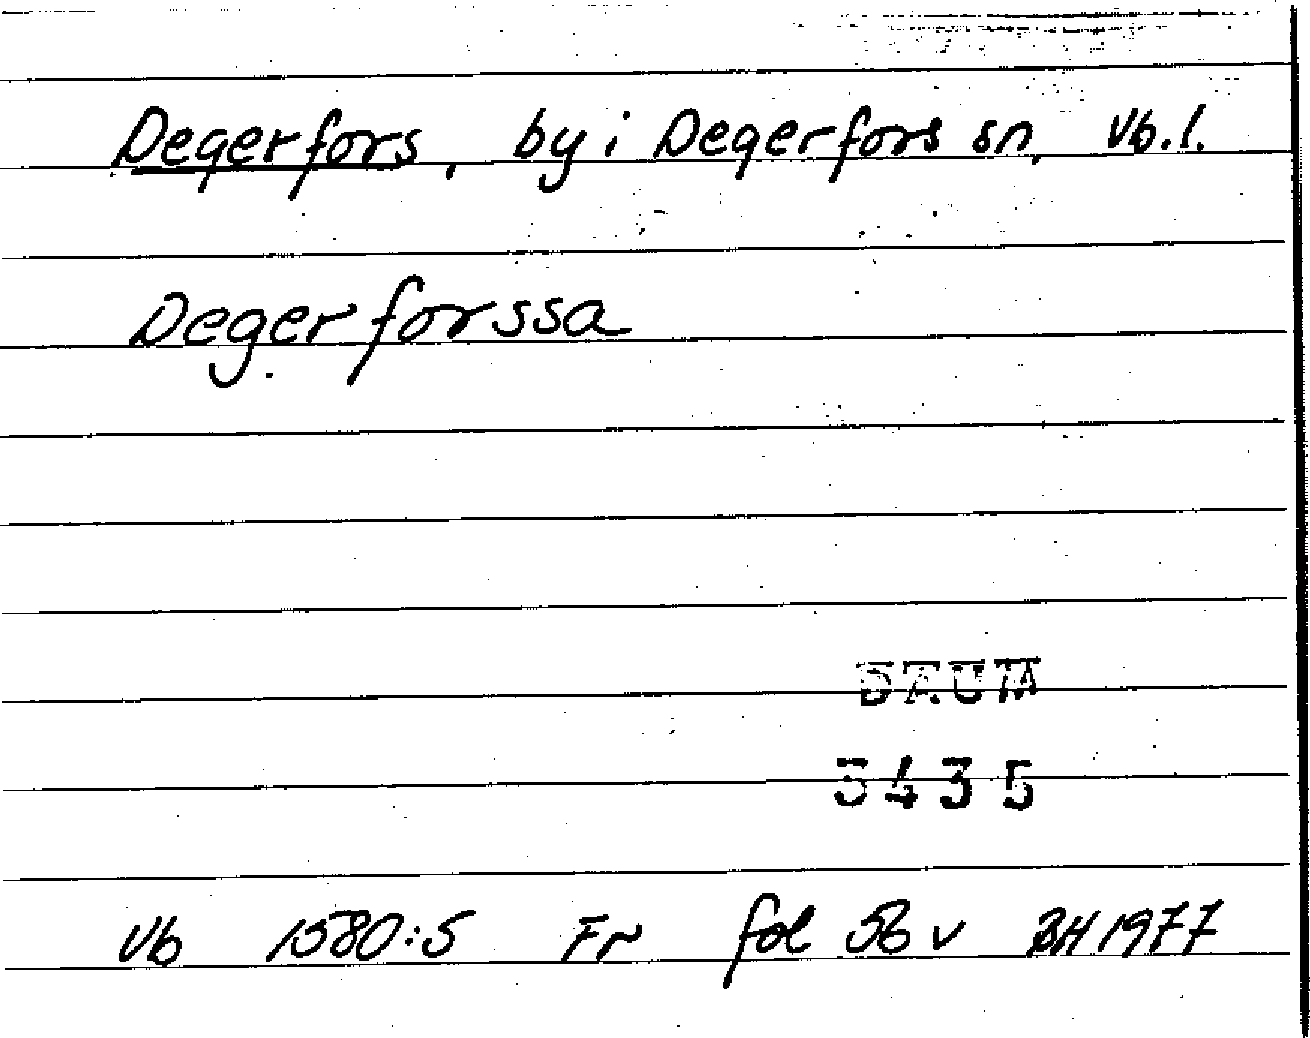 Degerfors, by i Degerfors sn, Vb.l.
Degerforssa
DAUM
5435
Vb 1580:5 Fr fol 56 v BH 1977